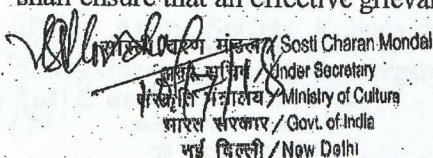 shall ensure that an effective grieva
चरण मंडल / Sosti Charan Mondal
अवर सचिव / Under Secretary
संस्कृति मंत्रालय / Ministry of Culture
भारत सरकार / Govt. of India
नई दिल्ली / New Delhi